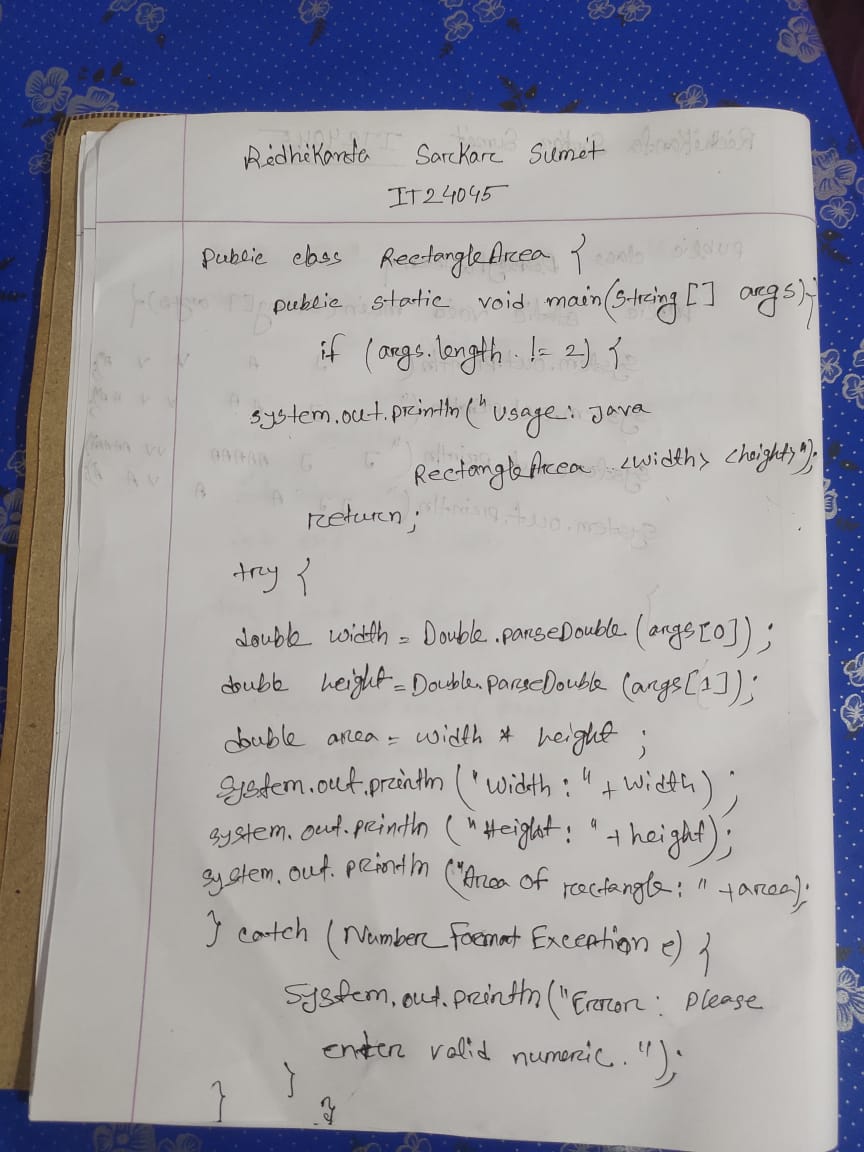 Ridhikanta Sarkar Sumit
IT24045
public class RectangleArea {
public static void main(String[] args);
if (args.length. != 2) {
system.out.println("Usage: Java
RectangleArea <width> <height>");
return;
try {
double width = Double.parseDouble (args[0]);
double height = Double.parseDouble (args[1]);
double area = width * height ;
System.out.println ("Width : " + width) ;
system.out.println ("Height: " + height);
system.out.println ("Area of rectangle: " + area);
} catch (Number Format Exception e) {
System.out.println ("Error: please
enter valid numeric.");
}
} }